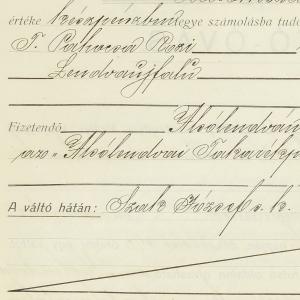 értéke készpénzben vegye számolásba tud
T. Pathocsa Rozi
Lendvaujfalu
Fizetendő Alsólendván
az „Alsólendvai Takarékp
A váltó hátán: Szak József s. k.